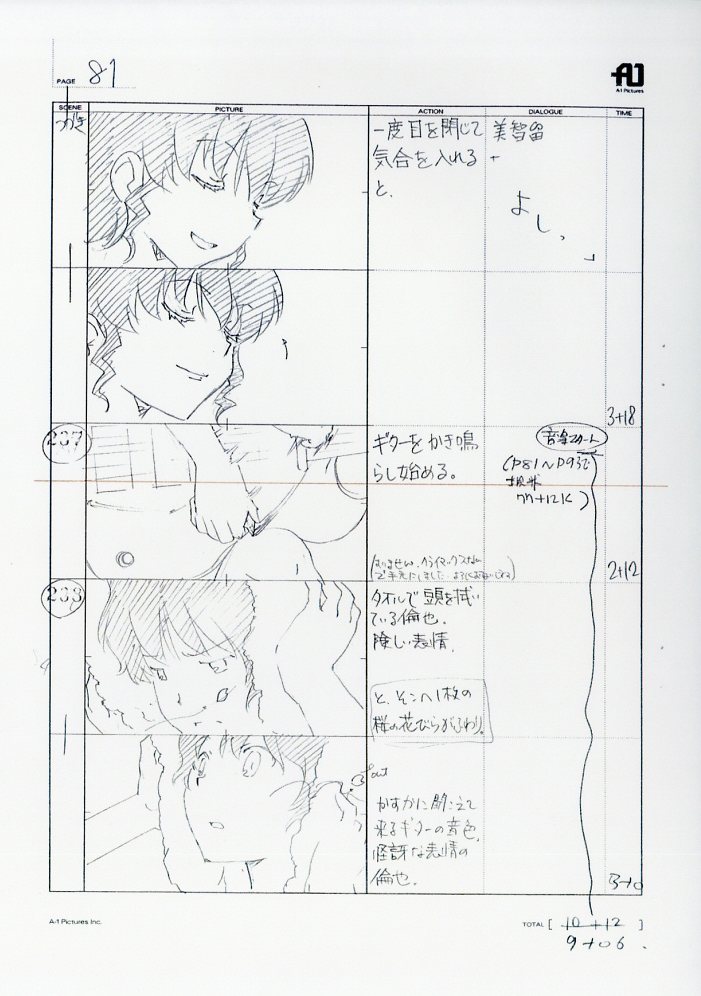 PAGE 81
A-1 Pictures
SCENE PICTURE ACTION DIALOGUE TIME
つづき
一度目を閉じて
気合を入れる
と、
美智留
よし。」
3+18
267
ギターをかき鳴
らし始める。
音楽スタート
2+12
268
タオルで頭を拭い
ている倫也。
険しい表情。
と、そこへ1枚の
桜の花びらがふわり。
out
かすかに聞こえて
来るギターの音色。
怪訝な表情の
倫也。
A-1 Pictures Inc.
TOTAL [ 10+12 ]
9+06.